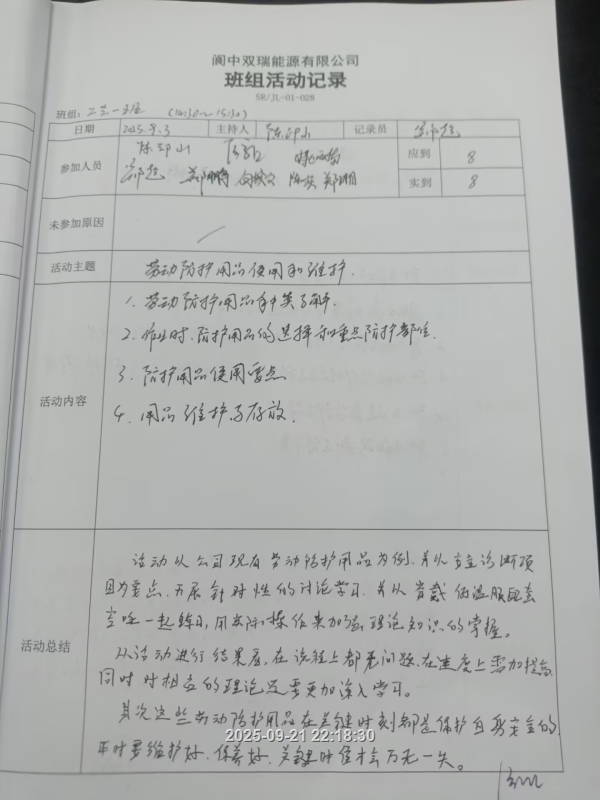 阆中双瑞能源有限公司
班组活动记录
SR/JL-01-028
班组: 工艺一班 (14:30~15:30)
日期 2025.9.3 主持人 记录员
参加人员 应到 8
郑湘 实到 8
未参加原因
活动主题 劳动防护用品使用和维护.
活动内容
1. 劳动防护用品种类了解.
2. 作业时、防护用品的选择和重点防护部位.
3. 防护用品使用要点
4. 用品维护与存放.
活动总结
活动以公司现有劳动防护用品为例,并以安全诊断项
目为要点,开展针对性的讨论学习,并从穿戴
一起练习,用实际操作来加强理论知识的掌握。
从活动进行结果看,在流程上都无问题,在速度上需加提高,
同时对相应的理论还要更加深入学习。
其次这些劳动防护用品在关键时刻都是保护自身安全的,
平时要维护好、保养好,关键时侯才会万无一失。
2025-09-21 22:18:30